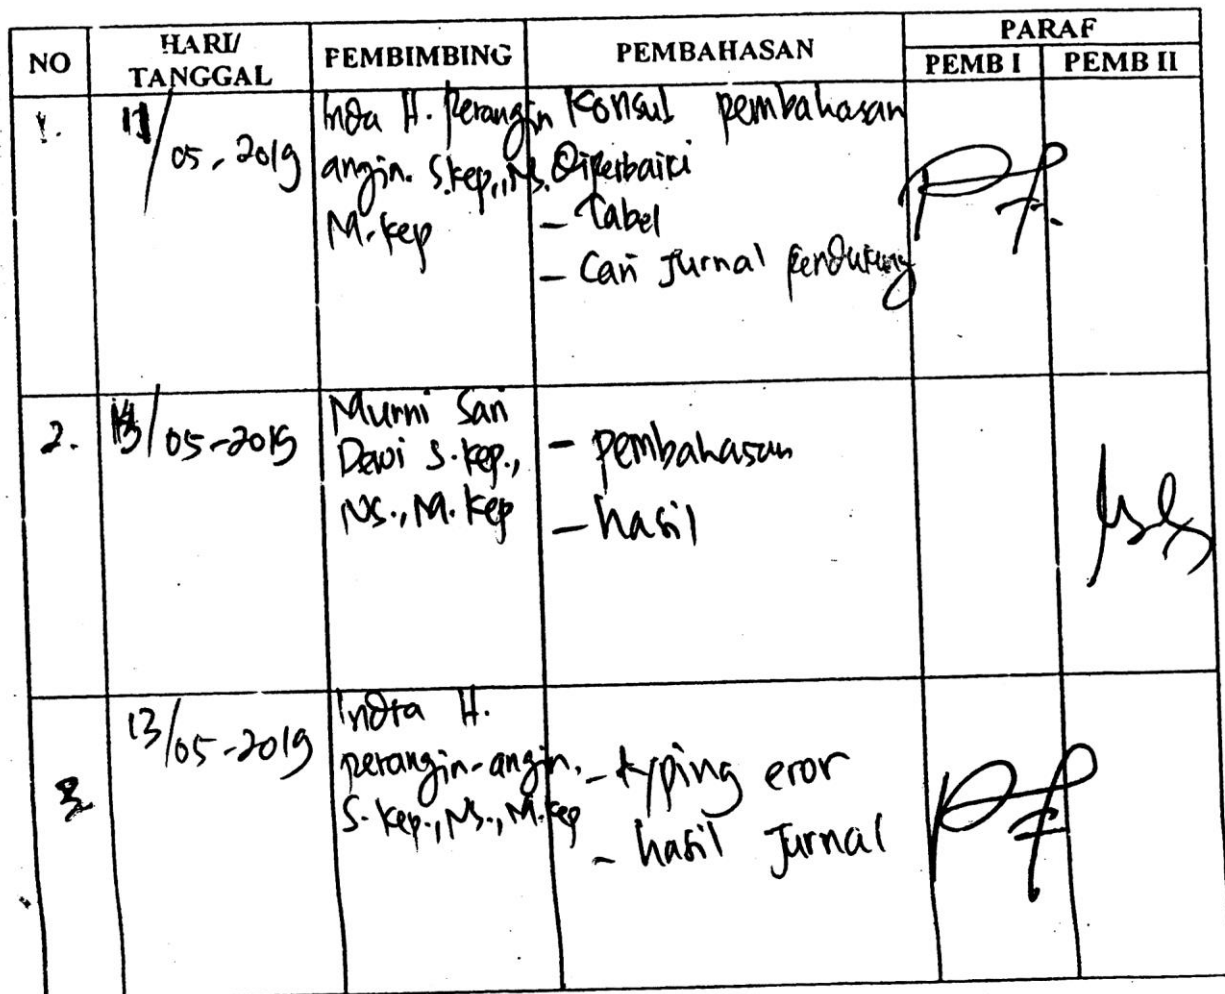 NO HARI/ TANGGAL PEMBIMBING PEMBAHASAN PARAF
PEMB I PEMB II
1. /05-2019 Indra H. Perangin angin. S.kep., Ns. M.kep
Konsul pembahasan
Diperbaiki
- Tabel
- Cari Jurnal pendukung
2. /05-2019 Murni Sari
Dewi S.kep.,
Ns., M.kep
- pembahasan
- hasil
3 13/05-2019 Indra H.
perangin-angin.
S.kep., Ns., M.kep
- typing eror
- hasil Jurnal